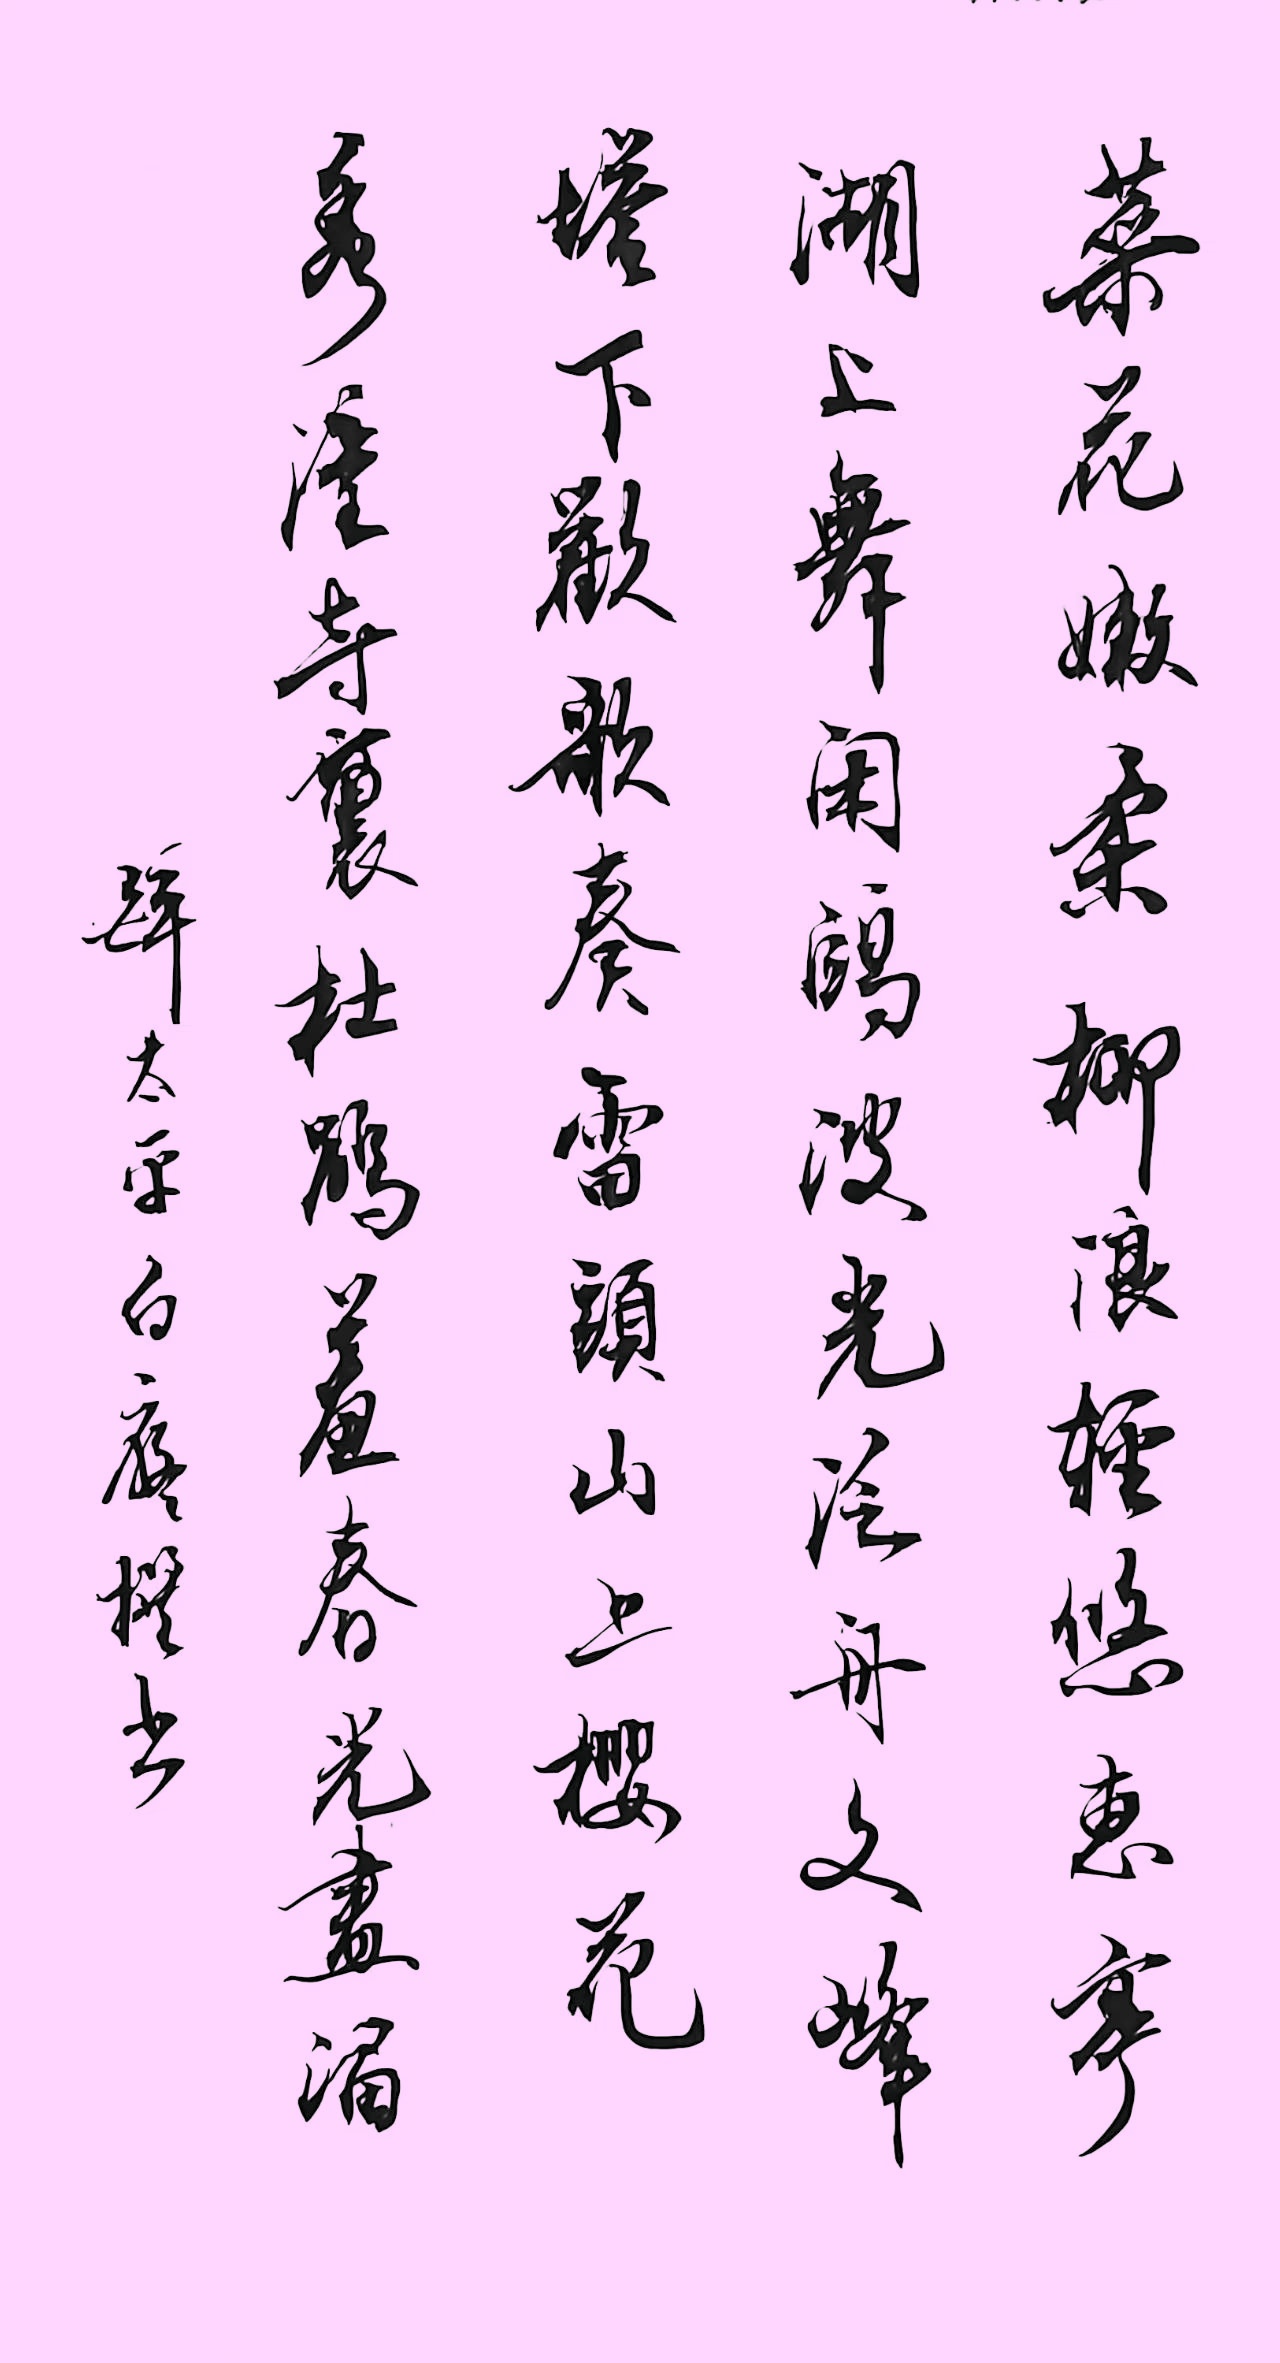 菜花嫩柔柳浪輕悠惠亭
湖上舞闲鷗波光泛舟文峰
塔下歡歌奏雷頭山上櫻花
秀寺裏杜鵑羞春光盡漏
太平白廬撰书